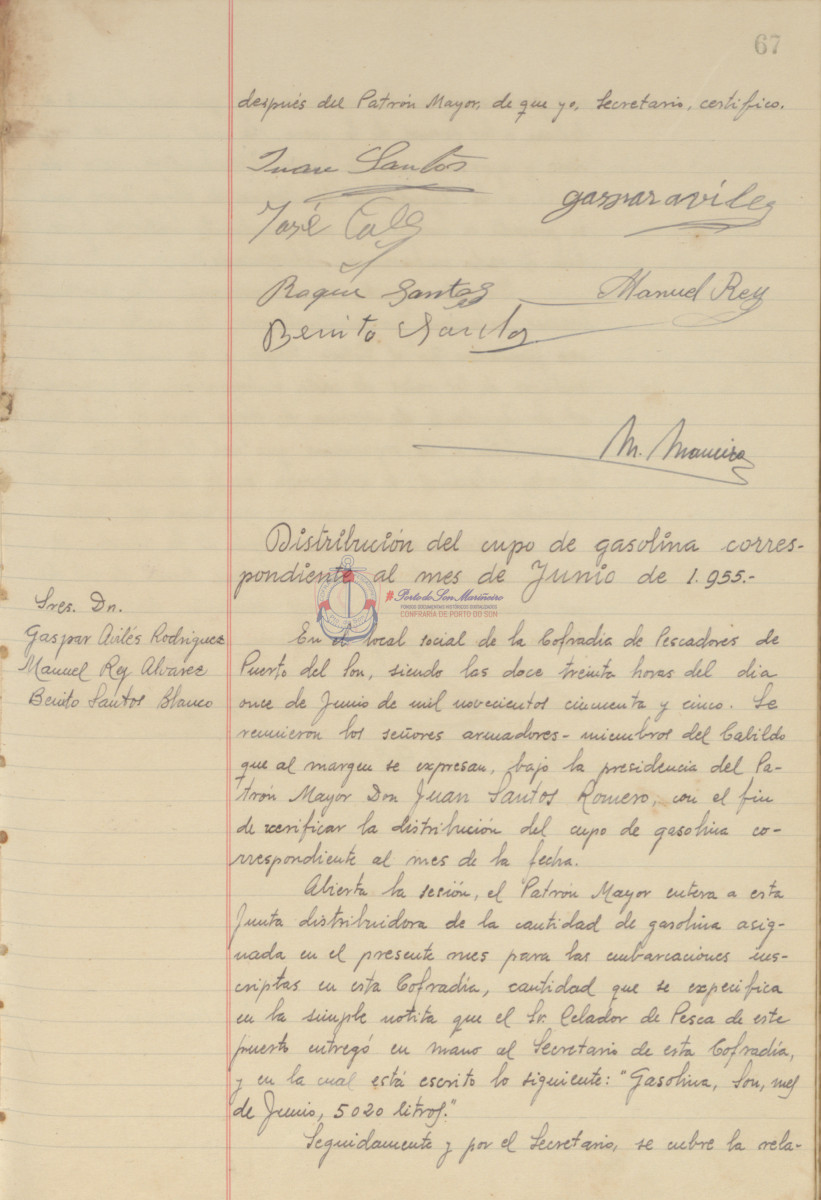 67
después del Patrón Mayor, de que yo, Secretario, certifico.
Juan Santos
gaspar aviles
José
Roque Santos
Manuel Rey
Benito Santos
M. Maneiro
Distribución del cupo de gasolina corres-
pondiente al mes de Junio de 1.955.-
#PortodoSonMariñeiro
FONDOS DOCUMENTAIS HISTÓRICOS DIXITALIZADOS
CONFRARÍA DE PORTO DO SON
Sres. Dn.
Gaspar Avilés Rodriguez
Manuel Rey Alvarez
Benito Santos Blanco
En el local social de la Cofradia de Pescadores de
Puerto del Son, siendo las doce treinta horas del dia
once de Junio de mil novecientos cincuenta y cinco. Se
reunieron los señores armadores-miembros del Cabildo
que al margen se expresan, bajo la presidencia del Pa-
trón Mayor Don Juan Santos Romero, con el fin
de verificar la distribución del cupo de gasolina co-
rrespondiente al mes de la fecha.
Abierta la sesión, el Patrón Mayor entera a esta
Junta distribuidora de la cantidad de gasolina asig-
nada en el presente mes para las embarcaciones ins-
criptas en esta Cofradía, cantidad que se expecifica
en la simple notita que el Sr. Celador de Pesca de este
puerto entregó en mano al Secretario de esta Cofradía,
y en la cual está escrito lo siguiente: "Gasolina, Son, mes
de Junio, 5020 litros."
Seguidamente y por el Secretario, se cubre la rela-